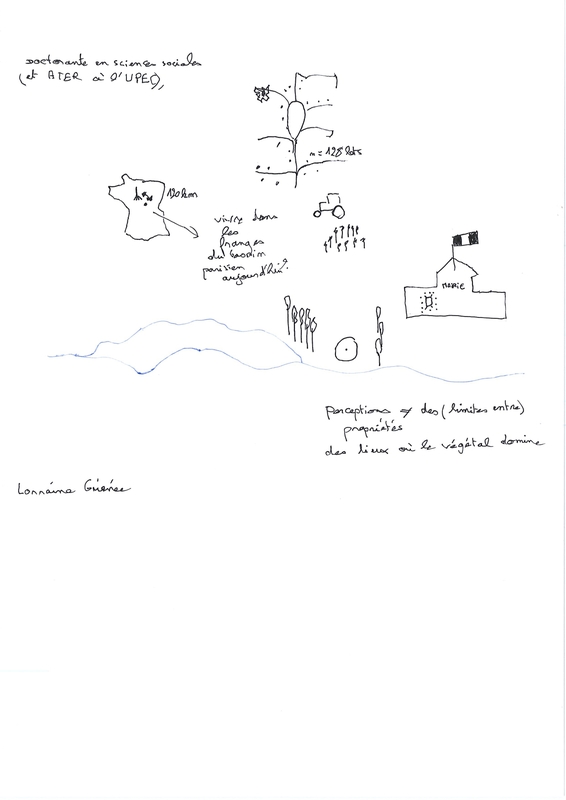 Doctorante en sciences sociales
(et ATER à l'UPEC),
n = 128 lots
120km
vivre dans
les
franges
du bassin
parisien
aujourd'hui?
MAIRIE
perceptions des (limites entre)
propriétés
des lieux où le végétal domine
Lorraine